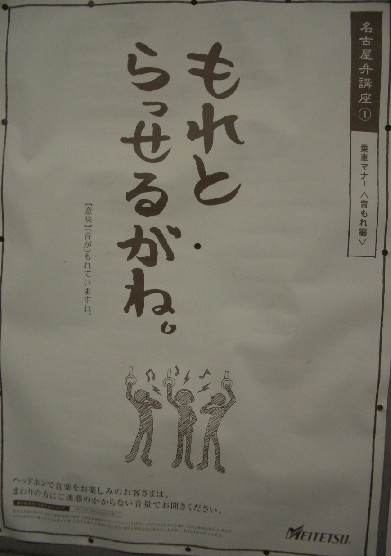 名古屋弁講座①
乗車マナー〈音もれ編〉
もれと
らっせるがね。
【意味】(音が)もれていますね。
ヘッドホンで音楽をお楽しみのお客さまは、
まわりの方にご迷惑のかからない音量でお聞きください。
MEITETSU